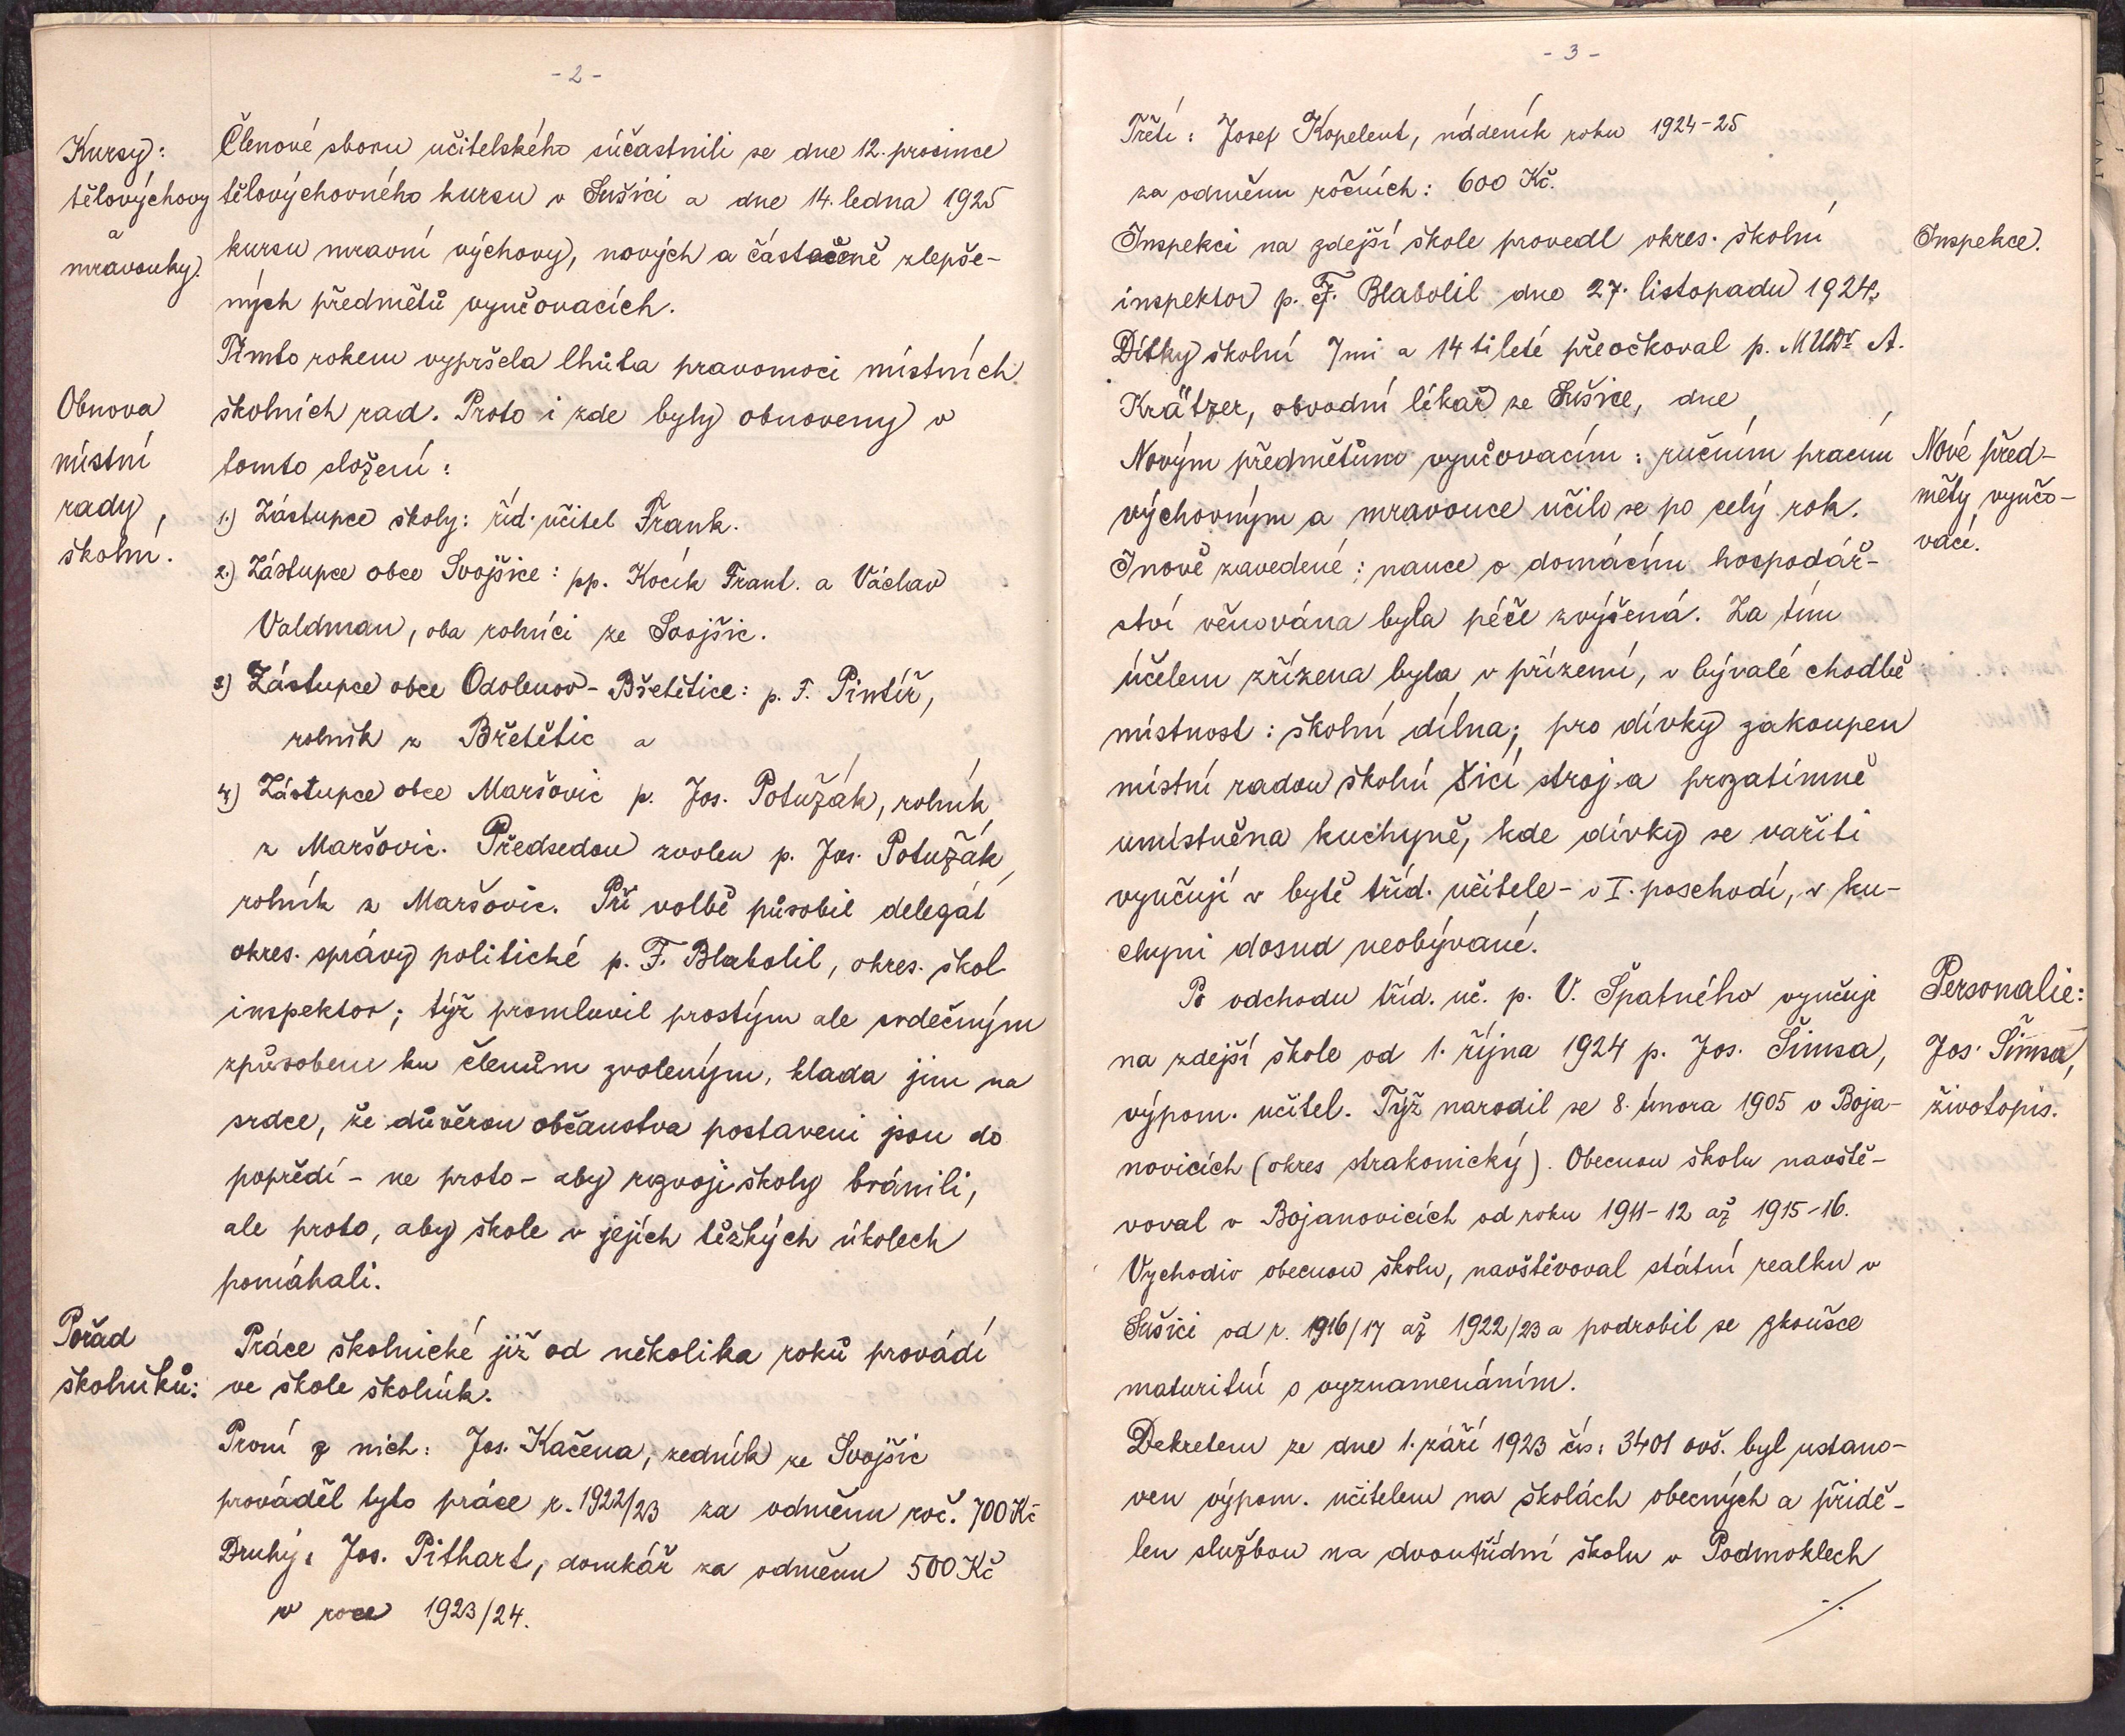 - 2 -
Kursy:
tělovýchovy
a
mravouky.
Členové sboru učitelského súčastnili se dne 12. prosince
tělovýchovného kursu v Sušici a dne 14. ledna 1925
kursu mravní výchovy, nových a částečně zlepše-
ných předmětů vyučovacích.
Tímto rokem vypršela lhůta pravomoci místních
Obnova
místní
rady,
školní.
školních rad. Proto i zde byly obnoveny v
tomto složení:
1.) Zástupce školy: říd. učitel Frank.
2.) Zástupce obce Svojšice: pp. Kocík Frant. a Václav
Valdman, oba rolníci ze Svojšic.
3) Zástupce obce Odolenov - Bšetětice: p. F. Pintíř,
rolník z Břetětic a
4) Zástupce obce Maršovic p. Jos. Potužák, rolník
z Maršovic. Předsedou zvolen p. Jos. Potužák,
rolník z Maršovic. Při volbě působil delegát
okres. správy politické p. F. Blabolil, okres. škol
inspektor; týž promluvil prostým ale srdečným
způsobem ku členům zvoleným, klada jim na
srdce, že důvěrou občanstva postaveni jsou do
popředí - ne proto - aby rozvoji školy bránili,
ale proto, aby škole v jejích těžkých úkolech
pomáhali.
Pořad
školníků:
Práce školnické již od několika roků provádí
ve škole školník.
První z nich: Jos. Kačena, zedník ze Svojšic
prováděl tyto práce r. 1922/23 za odměnu roč. 700 Kč
Druhý: Jos. Pithart, domkář za odměnu 500 Kč
v roce 1923/24.
- 3 -
Třetí: Josef Kopelent, nádeník roku 1924-25
za odměnu ročních: 600 Kč.
Inspekci na zdejší škole provedl okres. školní
Inspekce.
inspektor p. F. Blabolil dne 27. listopadu 1924,
Dítky školní 7mi a 14tileté přeočkoval p. MUDr A.
Krätzer, obvodní lékař ze Sušice, dne
Novým předmětům vyučovacím: ručním pracím
výchovným a mravouce učilo se po celý rok.
Nové před-
měty vyučo-
vací.
I nově zavedené: nauce o domácím hospodář-
ství věnována byla péče zvýšená. Za tím
účelem zřízena byla v přízemí, v bývalé chodbě
místnost: školní dílna; pro dívky zakoupen
místní radou školní šicí stroj a prozatímně
umístněna kuchyně, kde dívky se vařiti
vyučují v bytě tříd. učitele - v I. poschodí, v ku-
chyni dosud neobývané.
Po odchodu tříd. uč. p. V. Špatného vyučuje
na zdejší škole od 1. října 1924 p. Jos. Šimsa,
výpom. učitel. Týž narodil se 8. února 1905 v Boja-
Personalie:
Jos. Šimsa,
životopis.
novicích (okres strakonický). Obecnou školu navště-
voval v Bojanovicích od roku 1911-12 až 1915-16.
Vychodiv obecnou školu, navštěvoval státní realku v
Sušici od r. 1916/17 až 1922/23 a podrobil se zkoušce
maturitní s vyznamenáním.
Dekretem ze dne 1. září 1923 čís: 3401 ovš. byl ustano-
ven výpom. učitelem na školách obecných a přidě-
len službou na dvoutřídní školu v Podmoklech
./.